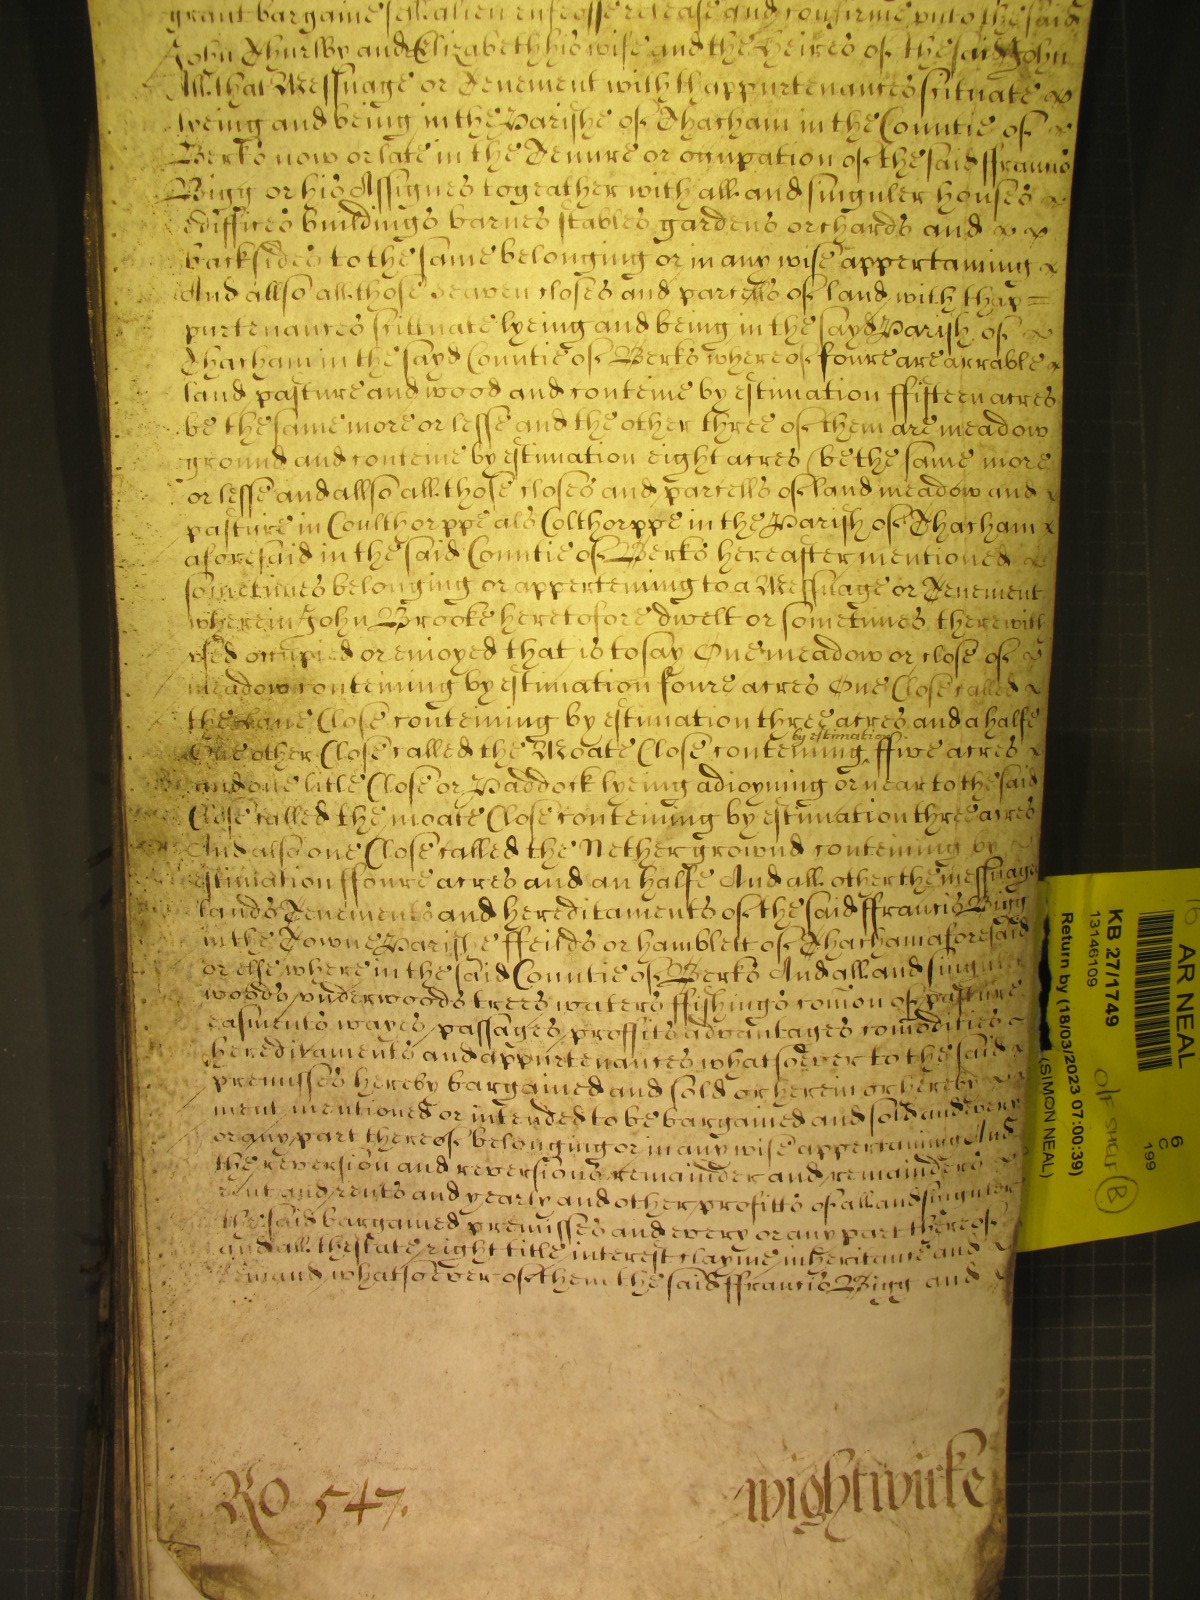 grant bargaine sell alien enfeoffe release and confirme unto the said
John Thurlby and Elizabeth his wife and the heires of the said John
All that Messuage or Tenement with thappurtenances scituate
lyeing and being in the Parishe of Thacham in the Countie of
Berks now or late in the Tenure or ocupation of the said ffrancis
Bigg or his Assignes togeather with all and singuler houses
ediffices buildings barnes stables gardens orchards and
backsides to the same belonging or in any wise appertaining
And allso all those seaven closes and parcells of land with thap=
purtenances scittuate lyeing and being in the sayd Parish of
Thacham in the sayd Countie of Berks whereof foure are arrable
land pasture and wood and conteine by estimation ffifteen acres
be the same more or lesse and the other three of them are meadow
ground and conteine by estimation eight acres (be the same more
or lesse and allso all those closes and parcells of land meadow and
pasture in Coulthorppe als Colthorppe in the Parish of Thacham
aforesaid in the said Countie of Berks hereafter mentioned
sometimes belonging or apperteining to a Messuage or Tenement
wherein John Brooke heretofore dwelt or sometimes therewith
used occupied or enioyed that is to say One meadow or close of
meadow conteining by estimation foure acres One Close called
the Lane Close conteining by estimation three acres and a halfe
One other Close called the Moate Close conteining by estimation ffive acres
and one litle Close or Paddock lyeing adioyning or near to the said
Close called the moate Close conteining by estimation three acres
And also one Close called the Nether grownd conteining by
estimation ffoure acres and an halfe And all other the messuages
lands Tenements and hereditaments of the said ffrancis Bigg
in the Towne Parishe ffeilds or hamblett of Thacham aforesaid
or else where in the said Countie of Berks And all and singuler
woods underwoods trees waters ffishings comon of pasture
easments wayes passages proffits advantages comodities
hereditaments and appurtenances whatsoever to the said
premisses hereby bargained and sold or herein or hereby
ment mentioned or intended to be bargained and sold and every
or any part thereof belonging or in any wise appertaining And
the reversion and reversions remainder and remainders
rent and rents and yearly and other profitts of all and singuler
the said bargained premisses and every or any part thereof
and all thestate right title interest clayme inheritance and
demand whatsoever of them the said ffrancis Bigg and
RO 547.
Wightwicke
AR NEAL
KB 27/1749
13146109
Return by (18/03/2023 07:00:39)
(SIMON NEAL)
O/F SHELF B
6
C
199